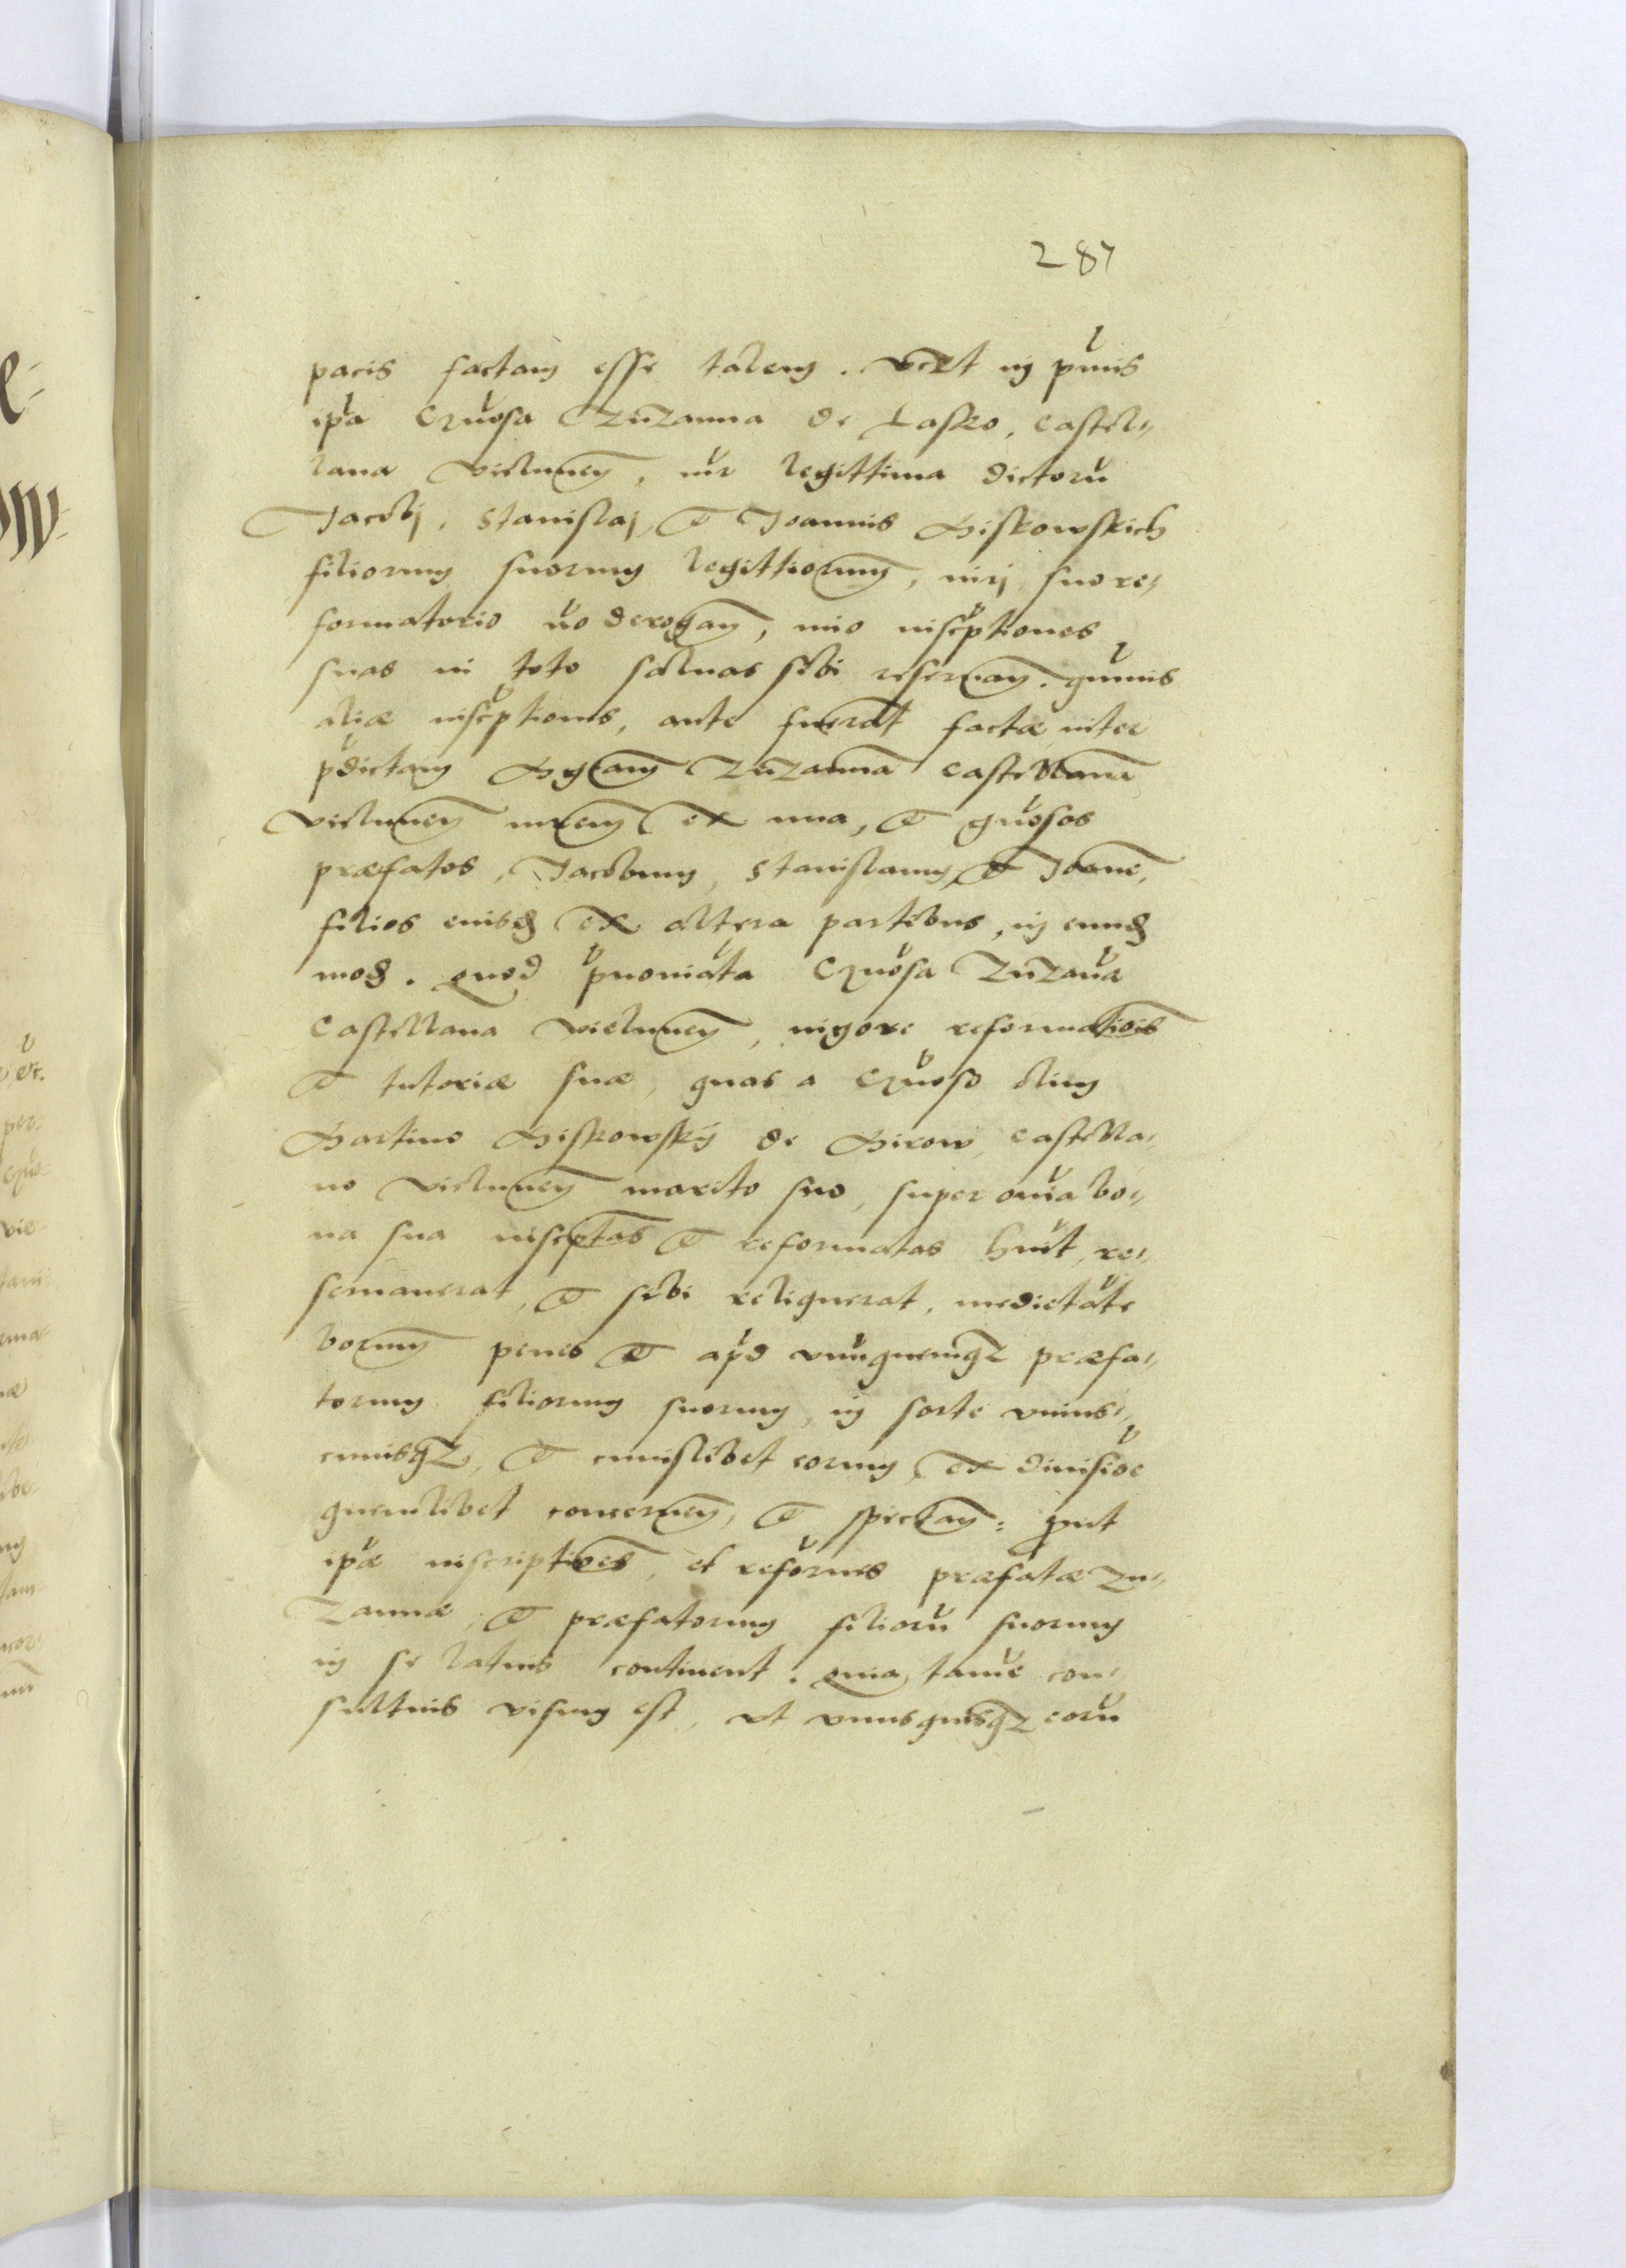 287
pacis factam esse talem. vczt in pmis
ipa Gnosa Zuzanna de Lasko, castel-
lana Vielunen, mr legittima dictoru
Jacobj, Stanislaj, et Joannis Giskowskich
filiorum suorum legittiorum, iurj suo re-
formatorio no derogan, imo inscptiones
suas in toto saluas sibi reseruan. quinis
aliæ inscptiones, ante fuerat factæ inter
pdictam Mgcam Zuzanna castellana
Vielunen mrem ex una, et gnosos
præfatos, Jacobum, Stanislaum, et Joane,
filios eiusd ex altera partibus, in eund
mod. Quod pnoniata Gnosa Zuzana
Castellana Vielunen, uigore reformatiois
et tutoriæ suæ, quas a Gnoso olim
Martino Giskowskij de Girow, castella-
no Vielunen marito suo, super onia bo-
na sua inscptas et reformatas huit, re-
seruauerat, et sibi reliquerat, medietate
bonorum penes et apd vnuquemqz præfa-
torum filiorum suorum, in sorte vnius-
cuiusqz, et cuiuslibet eorum, ex diuisioe
quemlibet concernen, et spectan: put
ipæ inscriptioes, et reformes præfatæ Zu-
zannæ, et præfatorum filioru suorum
in se latius continent. Quia tame con-
sultius visum est, vt vnusquisqz eoru